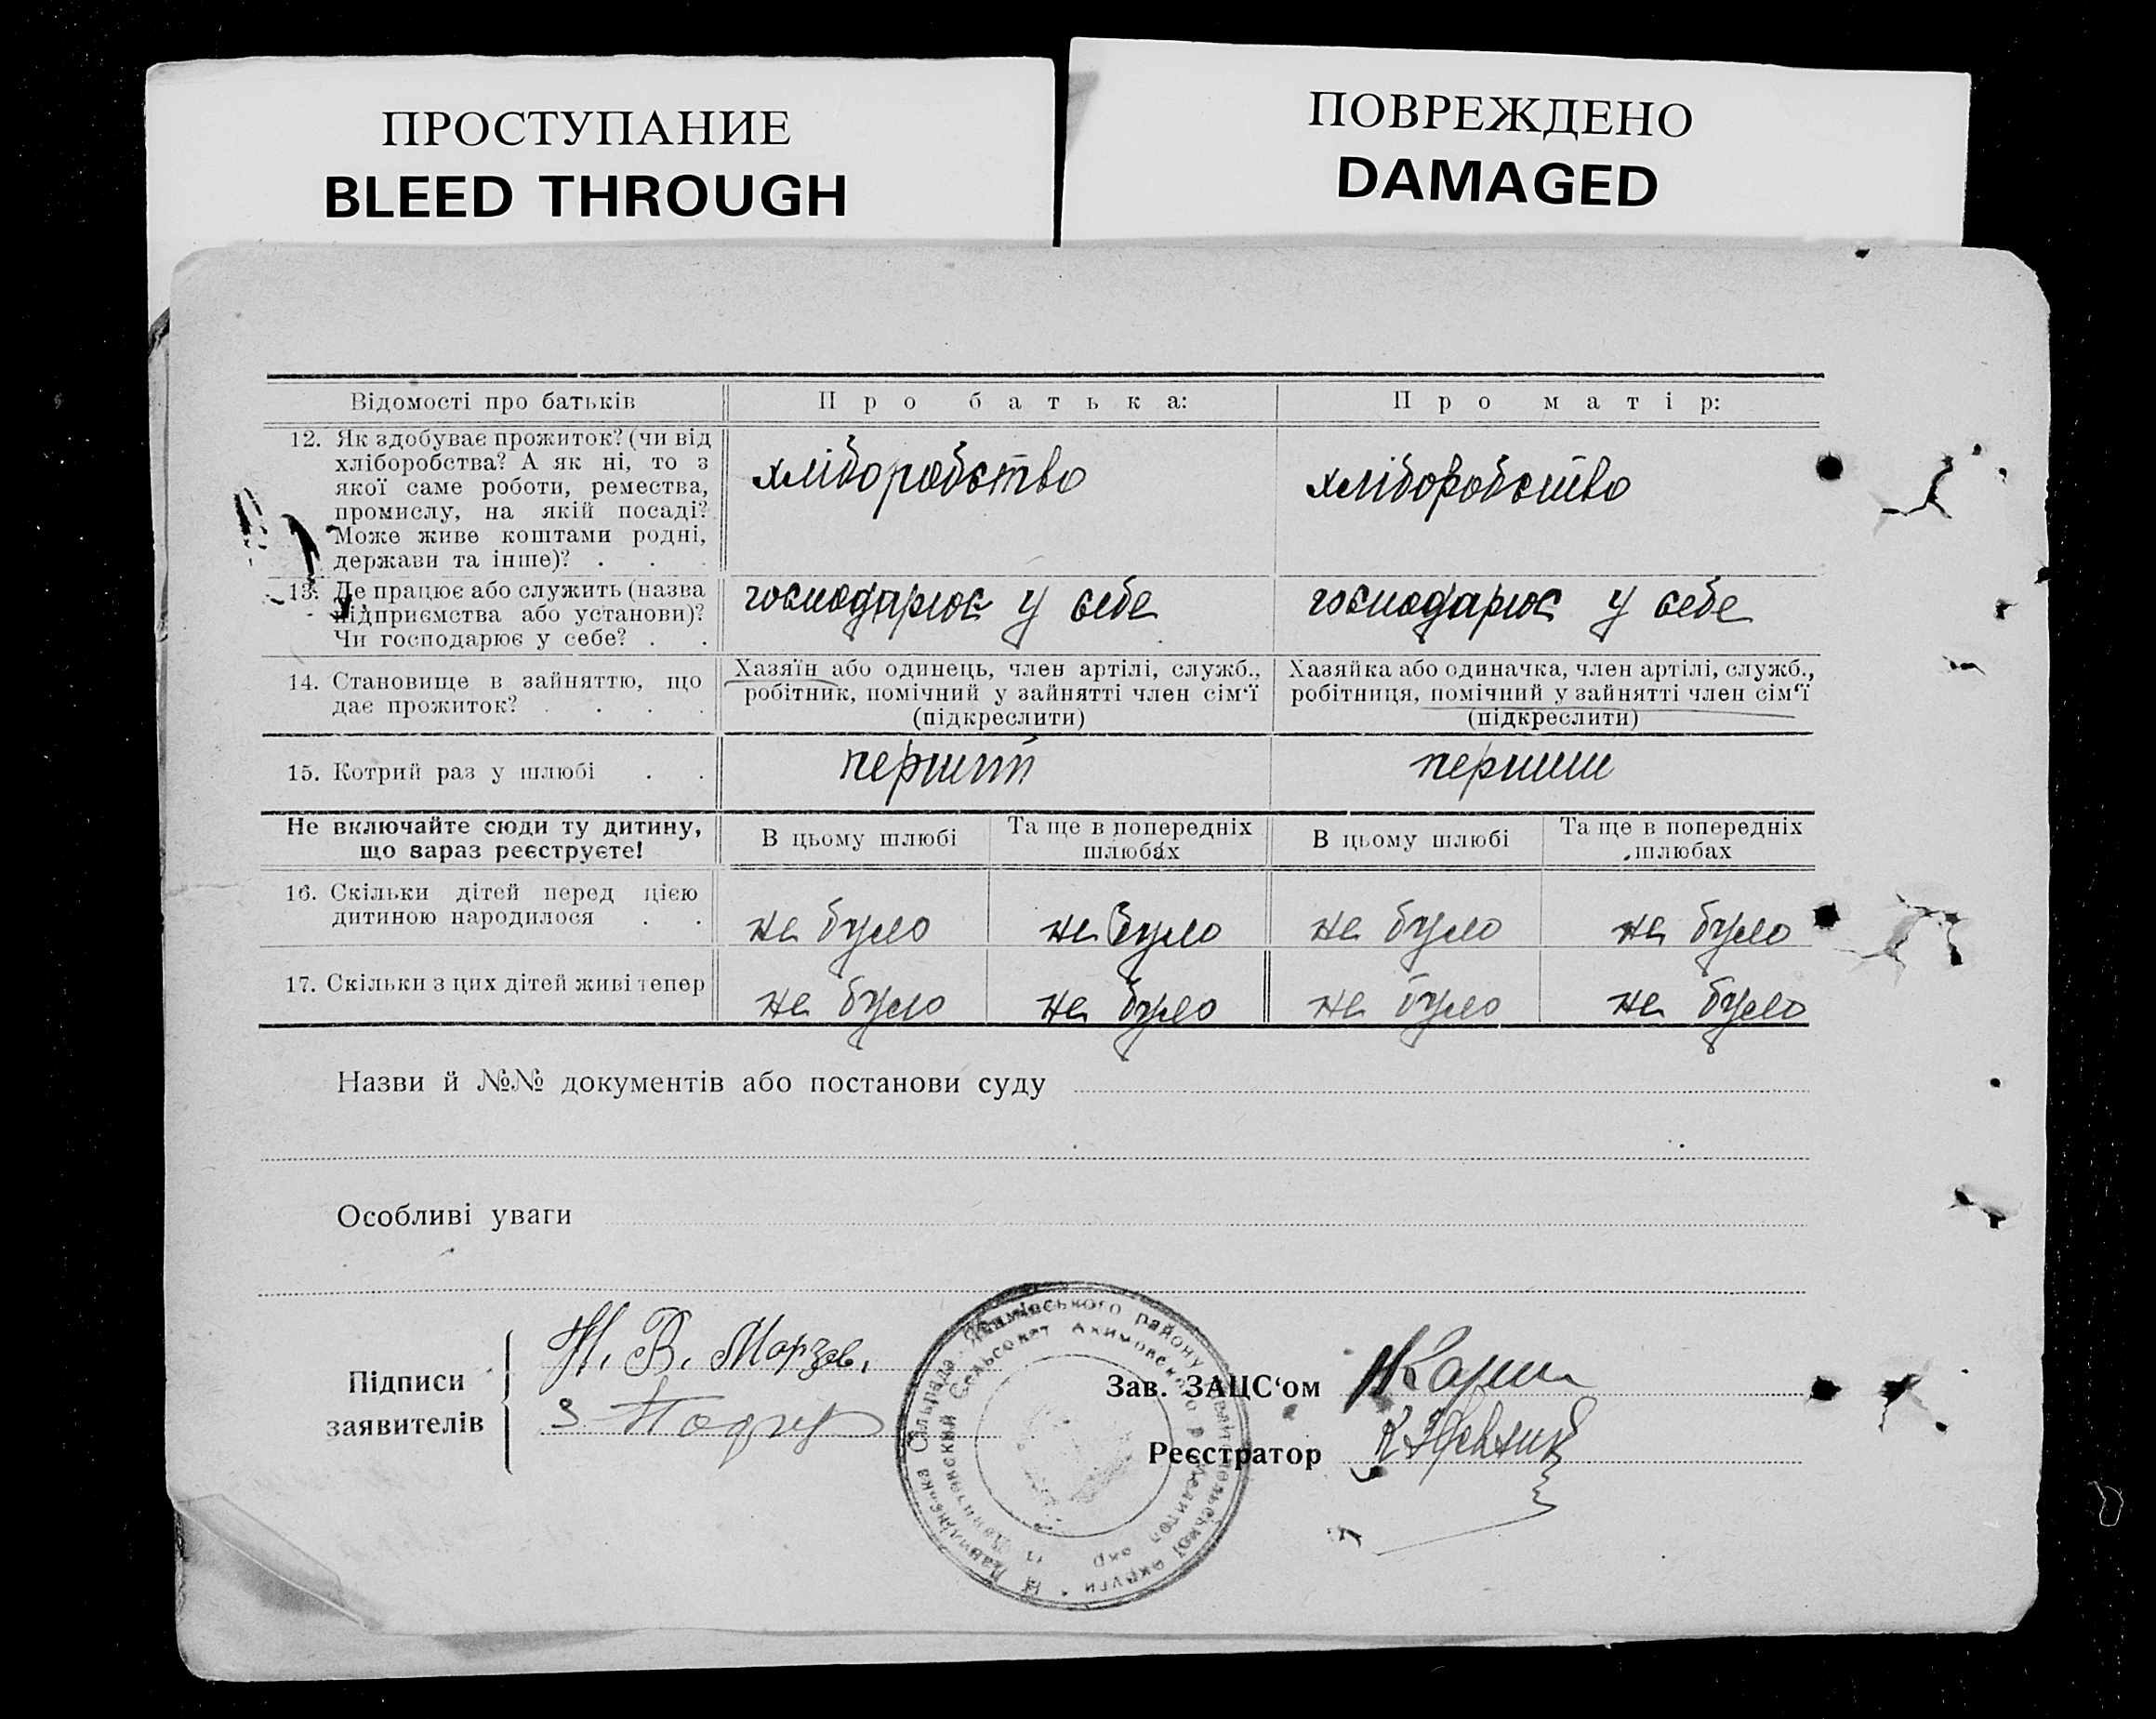 ПРОСТУПАНИЕ
BLEED THROUGH
ПОВРЕЖДЕНО
DAMAGED
Відомості про батьків
Про батька:
Про матір:
12. Як здобуває прожиток? (чи від
хліборобства? А як ні, то з
якої саме роботи, ремества,
промислу, на якій посаді?
Може живе коштами родні,
держави та інше)? . . .
хліборобство
хліборобство
13. Де працює або служить (назва
підприємства або установи)?
Чи господарює у себе? . .
господарює у себе
господарює у себе
14. Становище в зайняттю, що
дає прожиток? . . . .
Хазяїн або одинець, член артілі, служб.,
робітник, помічний у зайнятті член сім‘ї
(підкреслити)
Хазяйка або одиначка, член артілі, служб.,
робітниця, помічний у зайнятті член сім‘ї
(підкреслити)
15. Котрий раз у шлюбі . .
перший
перший
Не включайте сюди ту дитину,
що зараз реєструєте!
В цьому шлюбі
Та ще в попередніх
шлюбах
В цьому шлюбі
Та ще в попередніх
шлюбах
16. Скільки дітей перед цією
дитиною народилося . .
не було
не було
не було
не було
17. Скільки з цих дітей живі тепер
не було
не було
не було
не було
Назви й №№ документів або постанови суду
Особливі уваги
Підписи
заявителів
Н. В. Морзев.
Зав. ЗАЦС‘ом
Реєстратор
Сільрада Якимівського району Мелітопольської округи
Сельсовет Акимовского р. Мелитоп. окр.